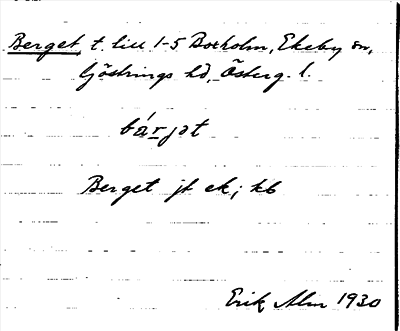 Berget, t. lill 1-5 Boxholm, Ekeby sn,
Göstrings hd, Österg. l.
bárjat
Berget jt ek; kb
Erik Alm 1930